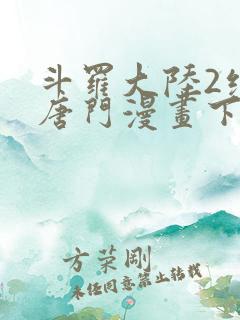 斗羅大陸2
唐門漫畫下
方荣剛
未经同意禁止转载